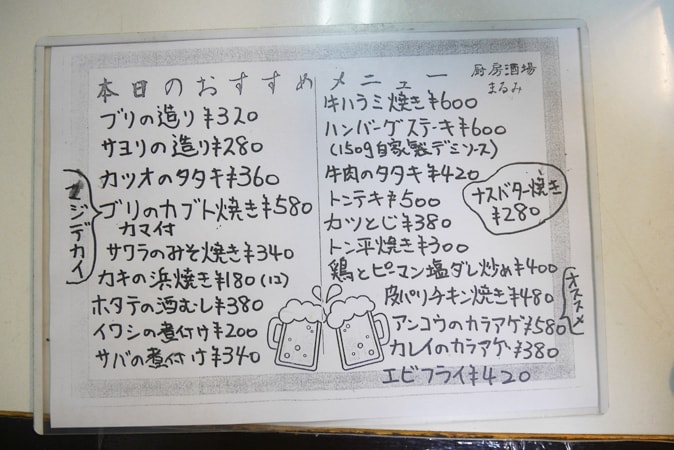 本日のおすすめメニュー
厨房酒場
まるみ
ブリの造り¥320
サヨリの造り¥280
カツオのタタキ¥360
マジデカイ
ブリのカブト焼き¥580
カマ付
サワラのみそ焼き¥340
カキの浜焼き¥180(1コ)
ホタテの酒むし¥380
イワシの煮付け¥200
サバの煮付け¥340
牛ハラミ焼き¥600
ハンバーグステーキ¥600
(150g自家製デミソース)
牛肉のタタキ¥420
トンテキ¥500
ナスバター焼き
¥280
カツとじ¥380
トン平焼き¥300
鶏とピーマン塩ダレ炒め¥400
皮パリチキン焼き¥480
オススメ
アンコウのカラアゲ¥580
カレイのカラアゲ¥380
エビフライ¥420